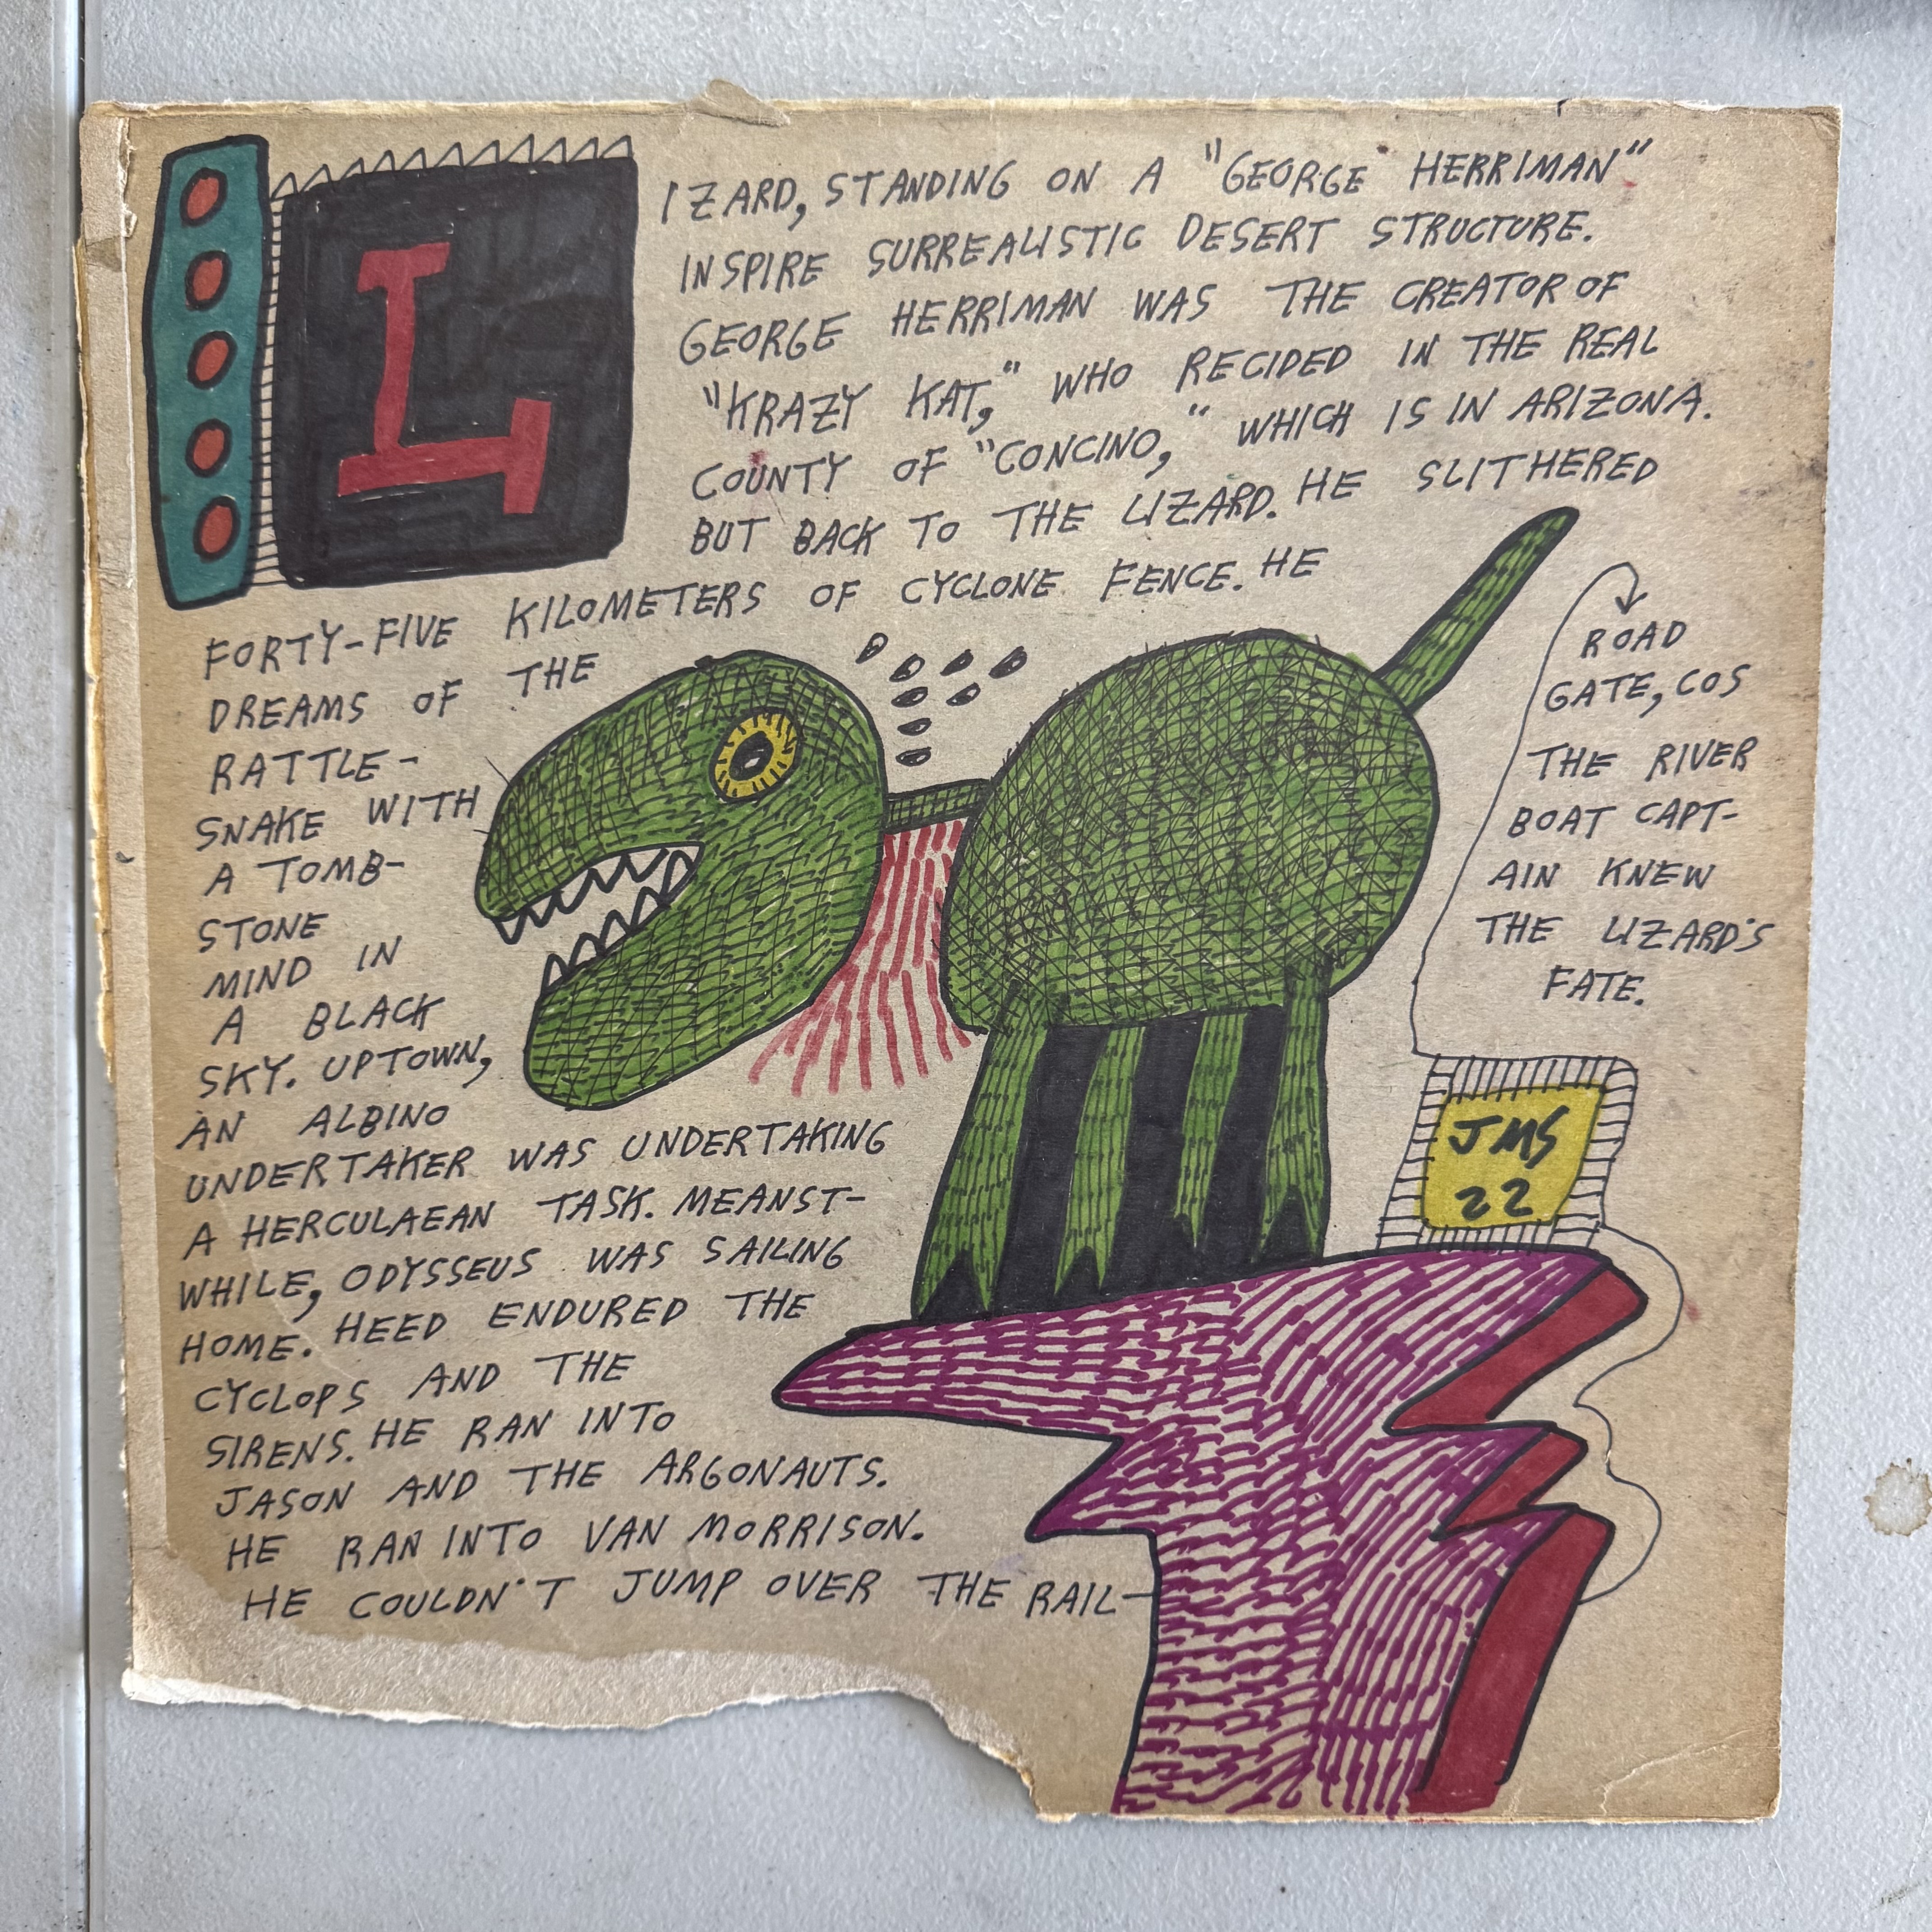 L
IZARD, STANDING ON A "GEORGE HERRIMAN"
INSPIRE SURREALISTIC DESERT STRUCTURE.
GEORGE HERRIMAN WAS THE CREATOR OF
"KRAZY KAT," WHO RECIDED IN THE REAL
COUNTY OF "CONCINO," WHICH IS IN ARIZONA.
BUT BACK TO THE LIZARD. HE SLITHERED
FORTY-FIVE KILOMETERS OF CYCLONE FENCE. HE
DREAMS OF THE
RATTLE-
SNAKE WITH
A TOMB-
STONE
MIND IN
A BLACK
SKY. UPTOWN,
AN ALBINO
UNDERTAKER WAS UNDERTAKING
A HERCULAEAN TASK. MEANST-
WHILE, ODYSSEUS WAS SAILING
HOME. HEED ENDURED THE
CYCLOPS AND THE
SIRENS. HE RAN INTO
JASON AND THE ARGONAUTS.
HE RAN INTO VAN MORRISON.
HE COULDN'T JUMP OVER THE RAIL-
ROAD
GATE, COS
THE RIVER
BOAT CAPT-
AIN KNEW
THE LIZARD'S
FATE.
JMS
22